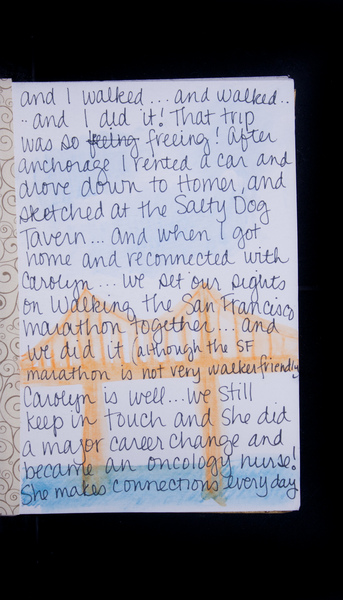 and I walked... and walked..
.. and I did it! That trip
was so feeling freeing! After
anchorage I rented a car and
drove down to Homer, and
sketched at the Salty Dog
Tavern... and when I got
home and reconnected with
Carolyn... we set our sights
on walking the San Francisco
marathon together... and
we did it (although the SF
marathon is not very walker friendly
Carolyn is well... we still
keep in touch and she did
a major career change and
became an oncology nurse!
She makes connections everyday